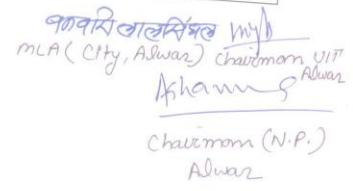 बनवारी लाल सिंघल
MLA (City, Alwar) Chairmam UIT
Alwar
Chairmam (N.P.)
Alwar